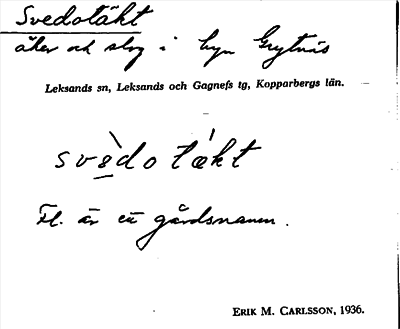 Svedotäkt
åker och skog i byn Grytnäs
Leksands sn, Leksands och Gagnefs tg, Kopparbergs län.
svèdo tǽkt
Fl. är ett gårdsnamn.
ERIK M. CARLSSON, 1936.